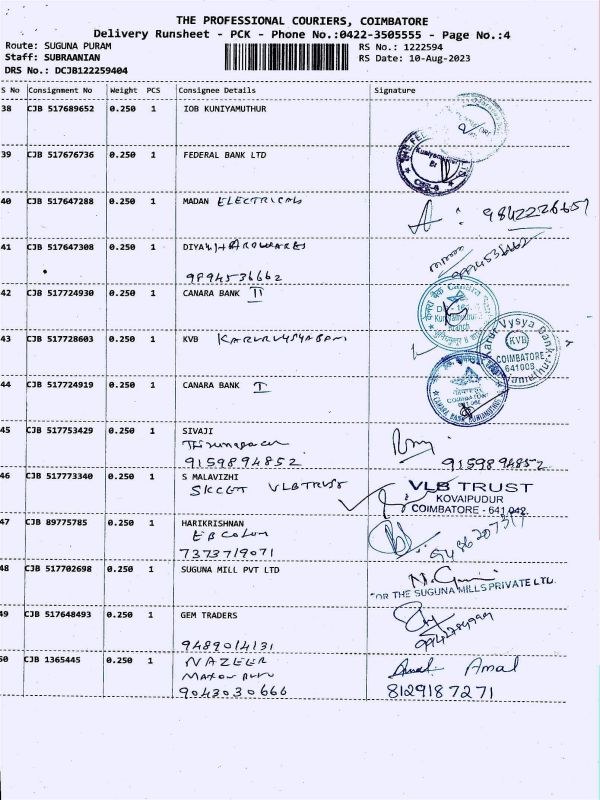 THE PROFESSIONAL COURIERS, COIMBATORE
Delivery Runsheet - PCK - Phone No.:0422-3505555 - Page No.:4
Route: SUGUNA PURAM
Staff: SUBRAANIAN
DRS No.: DCJB122259404
RS No.: 1222594
RS Date: 10-Aug-2023
S No Consignment No Weight PCS Consignee Details Signature
38 CJB 517689652 0.250 1 IOB KUNIYAMUTHUR
39 CJB 517676736 0.250 1 FEDERAL BANK LTD
40 CJB 517647288 0.250 1 MADAN ELECTRICALS
9842226657
41 CJB 517647308 0.250 1 DIYA HARDWARES
9894536662
42 CJB 517724930 0.250 1 CANARA BANK II
43 CJB 517728603 0.250 1 KVB KARURVYSYABANK
Karur Vysya Bank
KVB
COIMBATORE
641008
44 CJB 517724919 0.250 1 CANARA BANK I
45 CJB 517753429 0.250 1 SIVAJI
9159894852 9159894852
46 CJB 517773340 0.250 1 S MALAVIZHI
SKCET VLBTRUST
VLB TRUST
KOVAIPUDUR
COIMBATORE - 641 042.
47 CJB 89775785 0.250 1 HARIKRISHNAN
EB COLONY
7373719071
48 CJB 517702698 0.250 1 SUGUNA MILL PVT LTD
FOR THE SUGUNA MILLS PRIVATE LTD.
49 CJB 517648493 0.250 1 GEM TRADERS
9489014131
50 CJB 1365445 0.250 1 NAZEER
9043030666
Amal Amal
8129187271